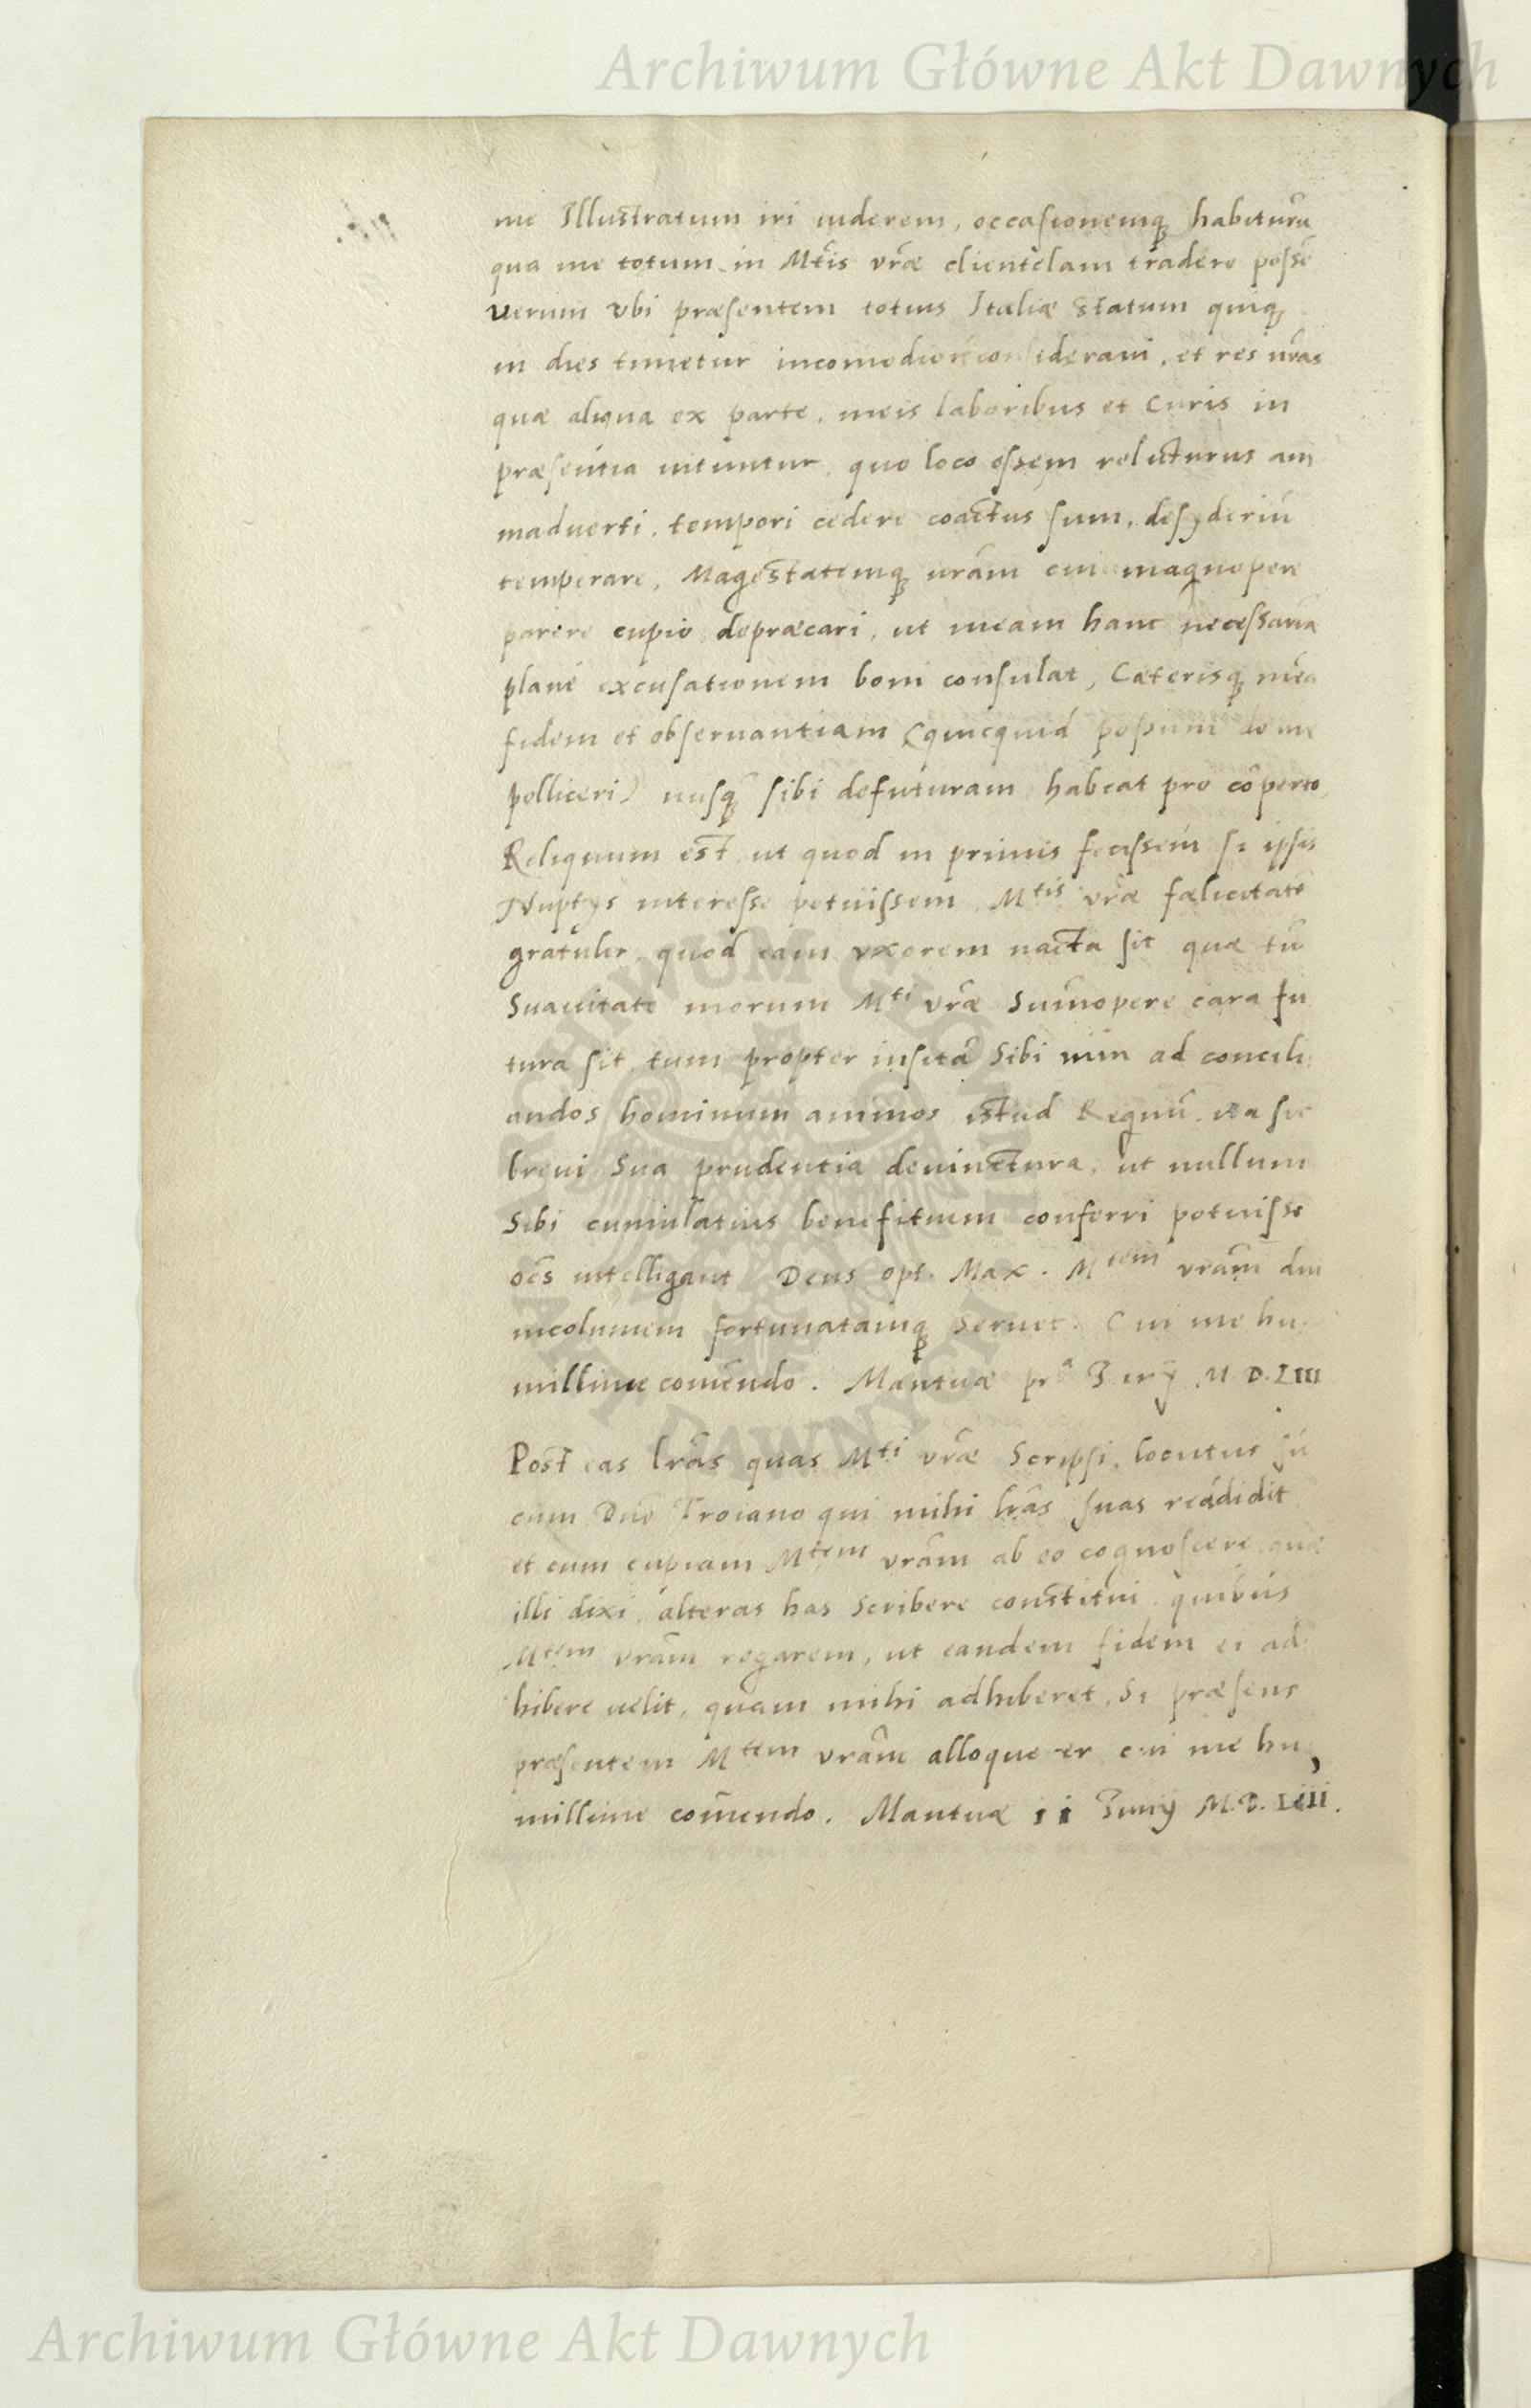 Archiwum Główne Akt Dawnych
me Illustratum iri uiderem, occasionemq̃ habiturũ
qua me totum in Mt̃is vr̃æ clientelam tradere possẽ
Verum vbi præsentem totius Italiæ statum quiq̃
in dies timetur incomodior consideraui, et res nr̃as
quæ aliqua ex parte, meis laboribus et curis in
præsentia nituntur, quo loco essem relicturus ani
maduerti, tempori cedere coactus sum, desyderiũ
temperare, Magestatemq̃ urãm cui magnopere
parere cupio depræcari, ut meam hanc necessariã
planè excusationem boni consulat, Cæterisq̃ meã
fidem et obseruantiam (quicquid possum de me
polliceri) nusq̃ sibi defuturam habeat pro cõperto,
Reliquum est ut quod in primis fecissem si ipsis
Nuptijs interesse potuissem Mtis vr̃æ fælicitatẽ
gratuler, quod eam vxorem nacta sit quæ tũ
Suauitate morum Mti vr̃æ Sum̃opere cara fu
tura sit, tum propter insitã Sibi uim ad concili
andos hominum animos istud Regnũ ita sit
breui Sua prudentia deuinctura, ut nullum
Sibi cumulatius benefitium conferri potuisse
oẽs intelligant Deus opt. Max. Mtem vrãm diu
incolumem fortunatamq̃ Seruet. Cui me hu
millime com̃endo. Mantuæ pra Iunij M.D.LIII
Post eas lrãs quas Mti vr̃æ Scripsi, locutus sũ
cum Dnõ Troiano qui mihi lrãs suas reddidit
et cum cupiam Mtem vrãm ab eo cognoscere quæ
illi dixi, alteras has Scribere constitui quibus
Mtem vrãm rogarem, ut eandem fidem ei ad
hibere uelit, quam mihi adhiberet, Si præsens
præsentem Mtem vrãm alloquerer cui me hu
millime com̃endo. Mantuæ ii Iunij M.D.LIII.
ARCHIWUM GŁÓWNE AKT DAWNYCH
Archiwum Główne Akt Dawnych